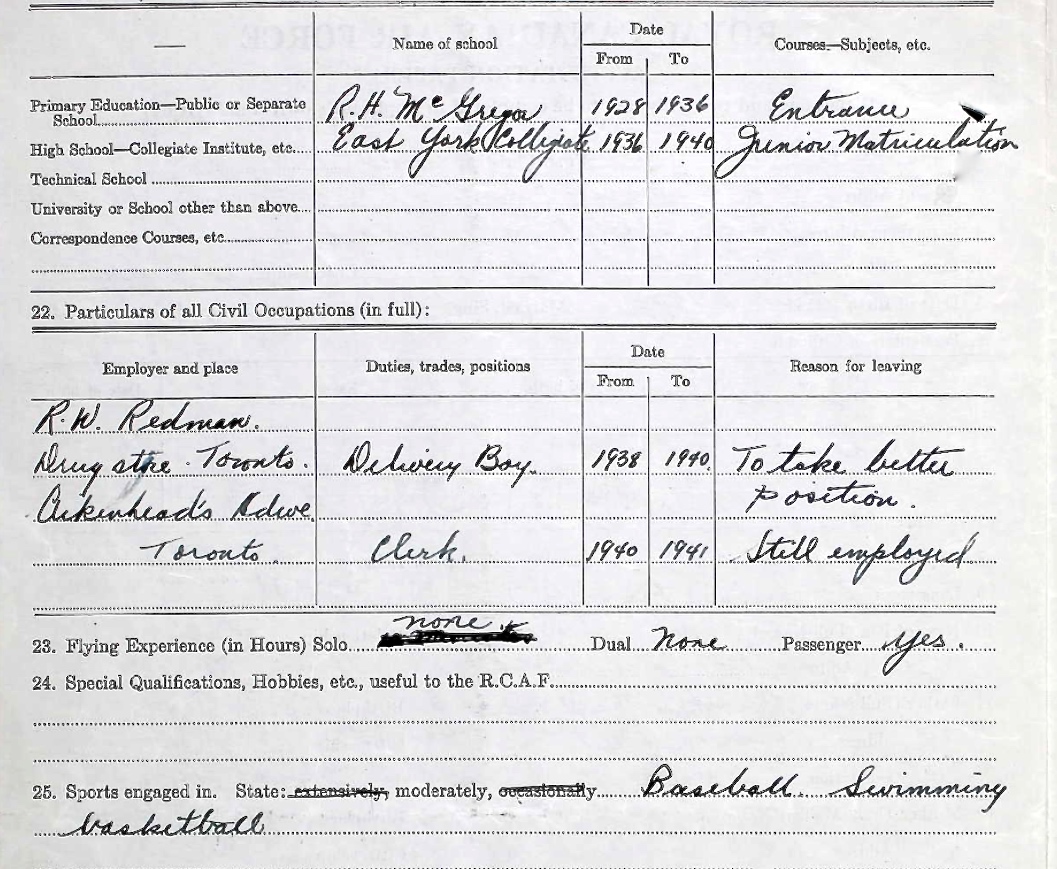 — Name of school Date Courses—Subjects, etc.
From To
Primary Education—Public or Separate School R.H. McGregor 1928 1936 Entrance
High School—Collegiate Institute, etc. East York Collegiate 1936 1940 Junior Matriculation
Technical School
University or School other than above
Correspondence Courses, etc.
22. Particulars of all Civil Occupations (in full):
Employer and place Duties, trades, positions Date Reason for leaving
From To
R.W. Redman.
Drug store. Toronto. Delivery Boy. 1938 1940 To take better
Aikenhead's Hdwe. position.
Toronto. Clerk. 1940 1941 Still employed
none
23. Flying Experience (in Hours) Solo Dual None Passenger yes.
24. Special Qualifications, Hobbies, etc., useful to the R.C.A.F.
25. Sports engaged in. State: extensively, moderately, occasionally Baseball. Swimming
basketball